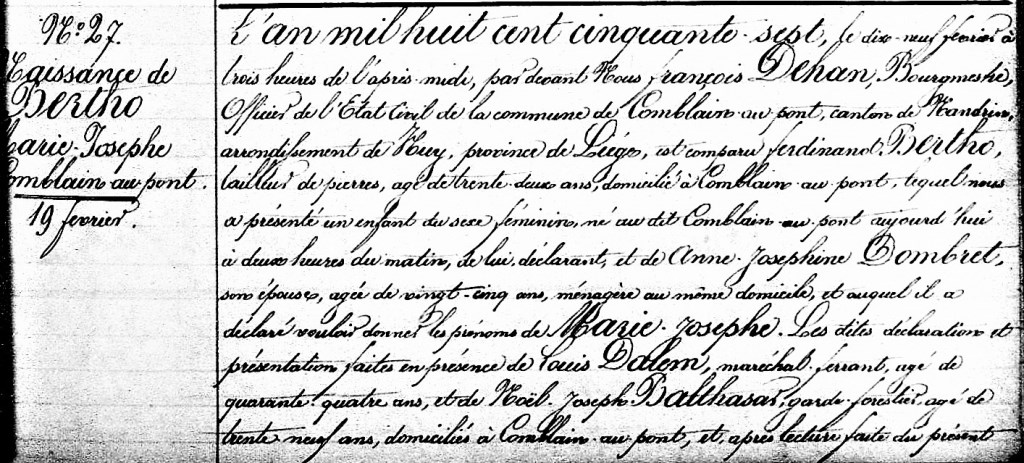 N° 27.
Naissance de
Bertho
Marie-Josephe
Comblain au pont.
19 février.
L'an mil huit cent cinquante-sept, le dix-neuf février à
trois heures de l'après-midi, par devant Nous françois Dehan, Bourgmestre,
Officier de l'Etat Civil de la commune de Comblain-au-pont, canton de Nandrin,
arrondissement de Huy, province de Liége, est comparu ferdinand Bertho,
tailleur de pierres, agé de trente-deux ans, domicilié à Comblain-au-pont, lequel nous
a présenté un enfant du sexe féminin, né au dit Comblain-au-pont aujourd'hui
à deux heures du matin, de lui, déclarant, et de Anne-Josephine Dombret,
son épouse, agée de vingt-cinq ans, ménagère au même domicile, et auquel il a
déclaré vouloir donner les prénoms de Marie-Josephe. Les dites déclaration et
présentation faites en présence de Louis Dalem, maréchal-ferrant, agé de
quarante-quatre ans, et de Noël-Joseph Balthasar, garde-forestier, agé de
trente-neuf ans, domiciliés à Comblain-au-pont, et, après lecture faite du présent